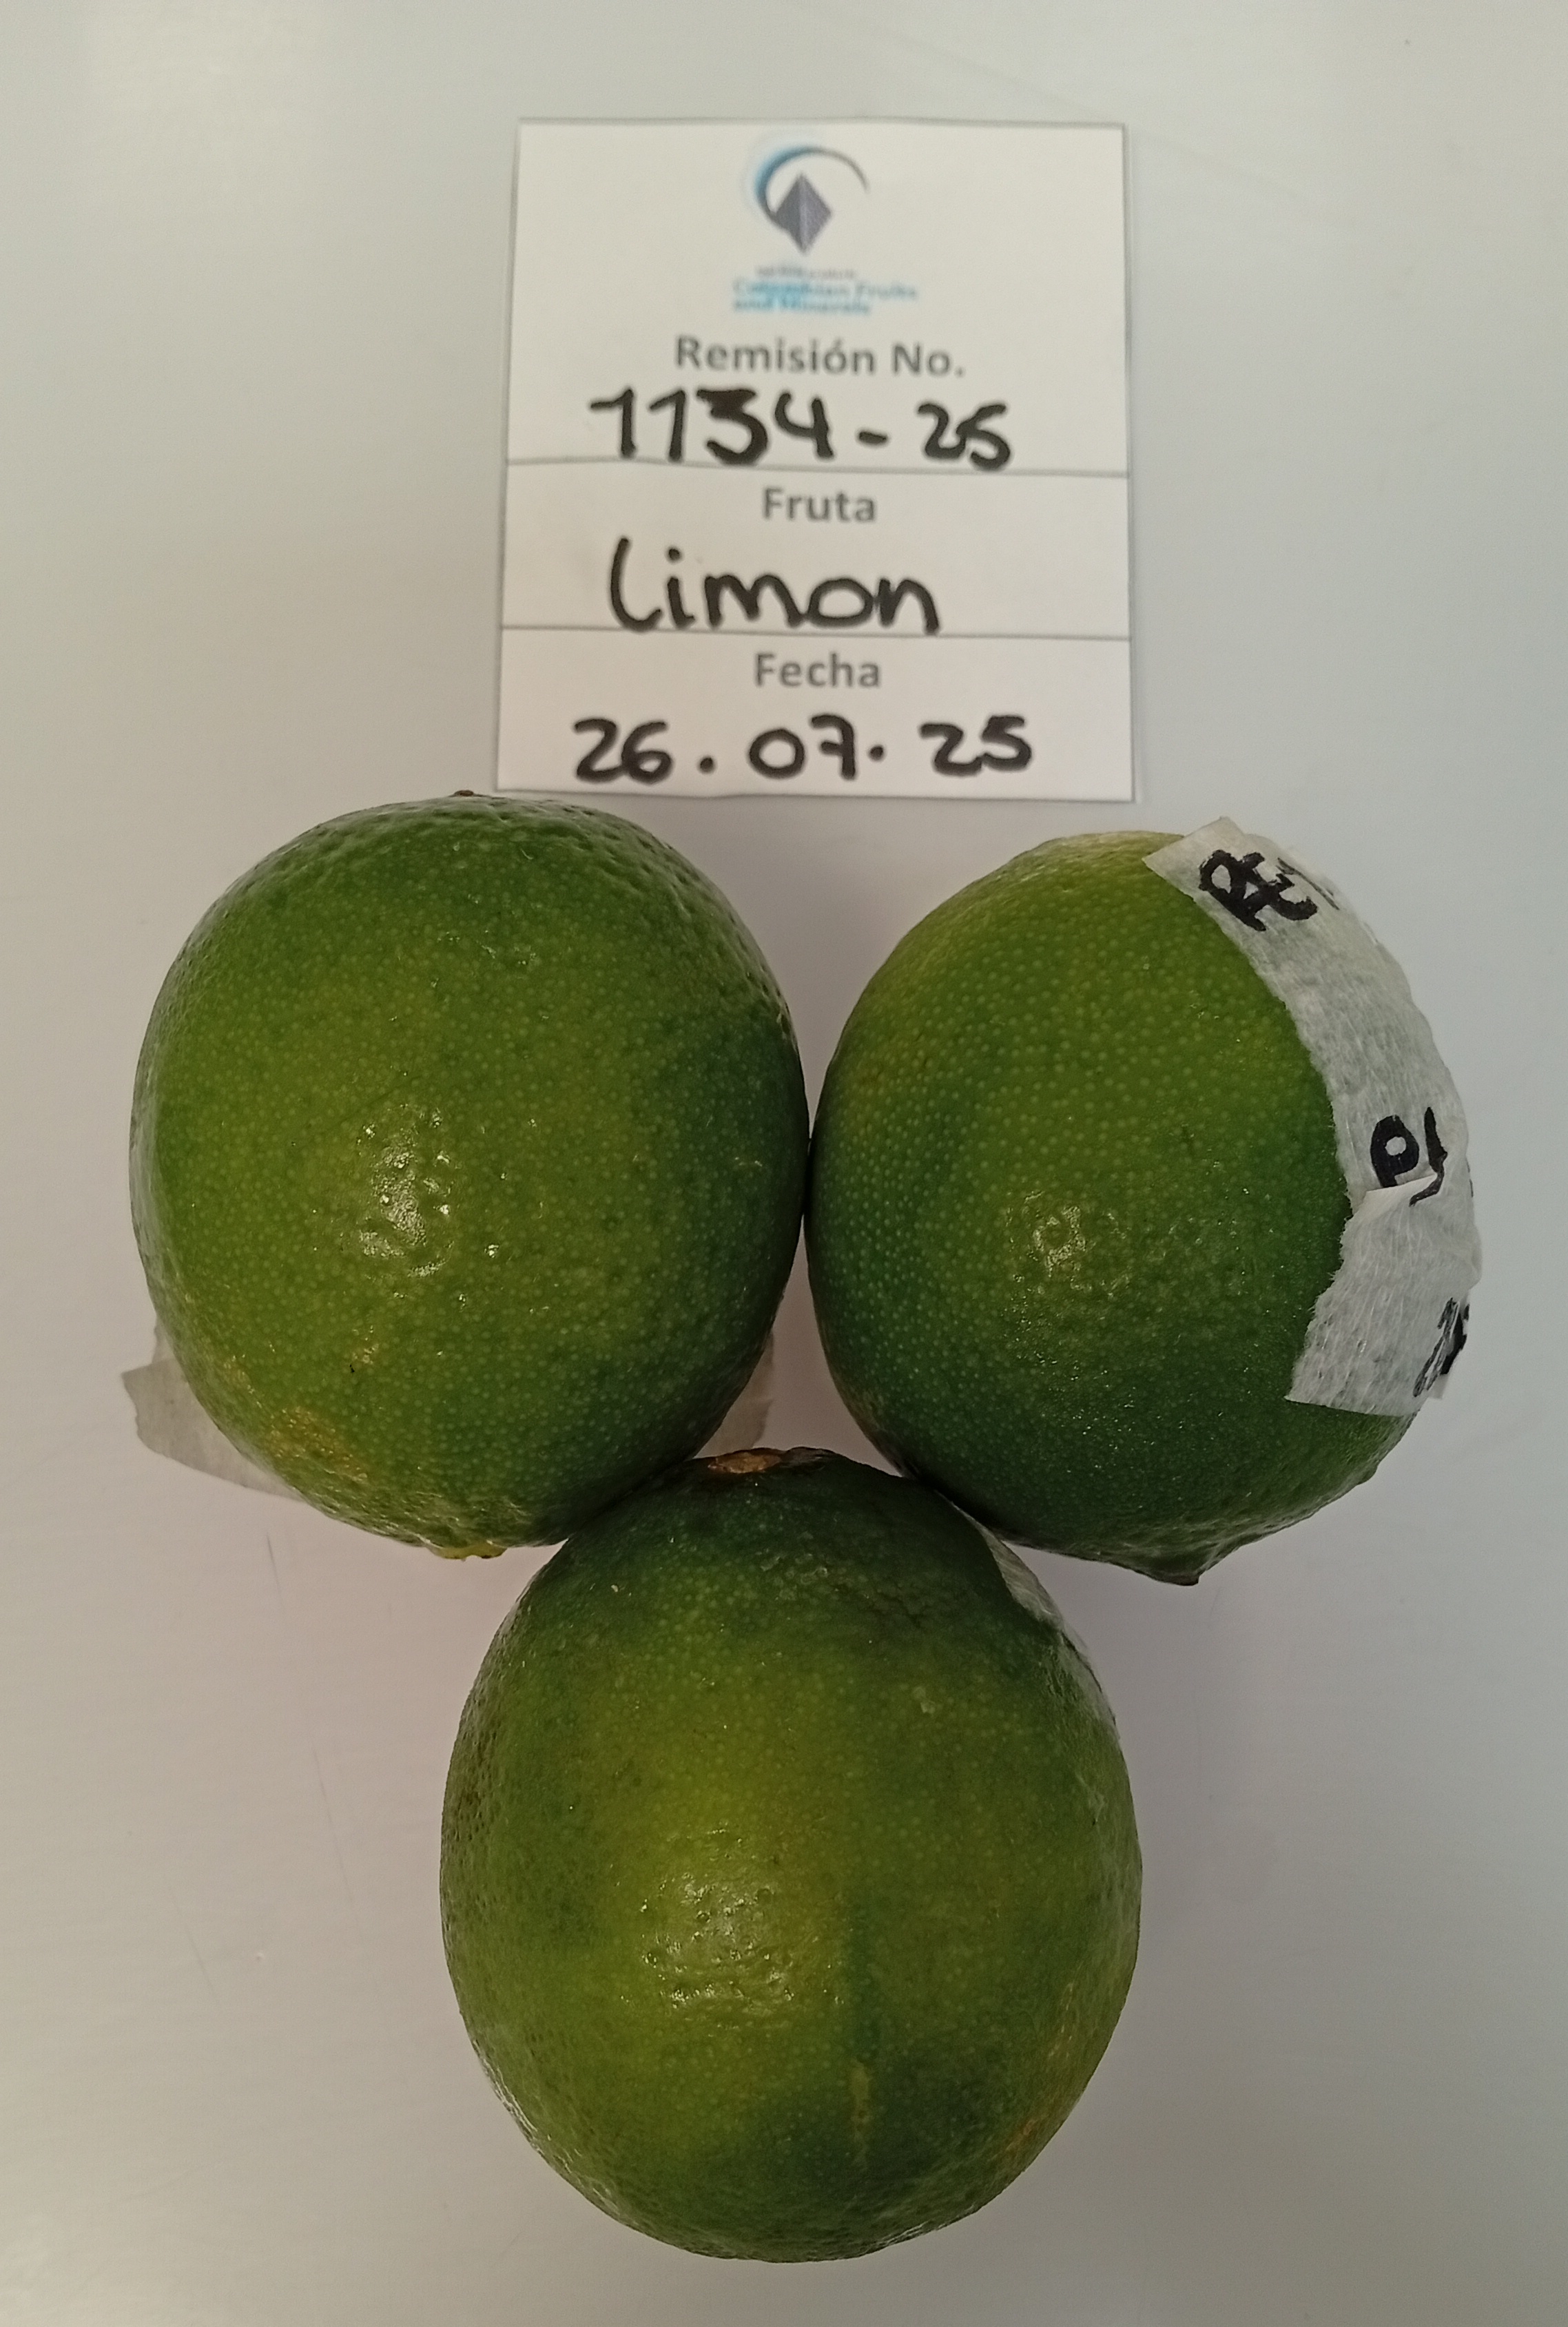 Colombian Fruits
and Minerals
Remisión No.
1134-25
Fruta
Limon
Fecha
26.07.25